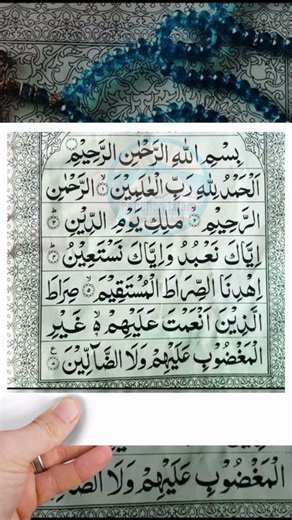 بِسْمِ اللهِ الرَّحْمٰنِ الرَّحِيْمِ
اَلْحَمْدُ لِلّٰهِ رَبِّ الْعٰلَمِيْنَ ۙ الرَّحْمٰنِ
الرَّحِيْمِ ۙ مٰلِكِ يَوْمِ الدِّيْنِ ؕ
اِيَّاكَ نَعْبُدُ وَاِيَّاكَ نَسْتَعِيْنُ ؕ
اِهْدِنَا الصِّرَاطَ الْمُسْتَقِيْمَ ۙ صِرَاطَ
الَّذِيْنَ اَنْعَمْتَ عَلَيْهِمْ ۙ۬ غَيْرِ
الْمَغْضُوْبِ عَلَيْهِمْ وَلَا الضَّآلِّيْنَ
الْمَغْضُوْبِ عَلَيْهِمْ وَلَا